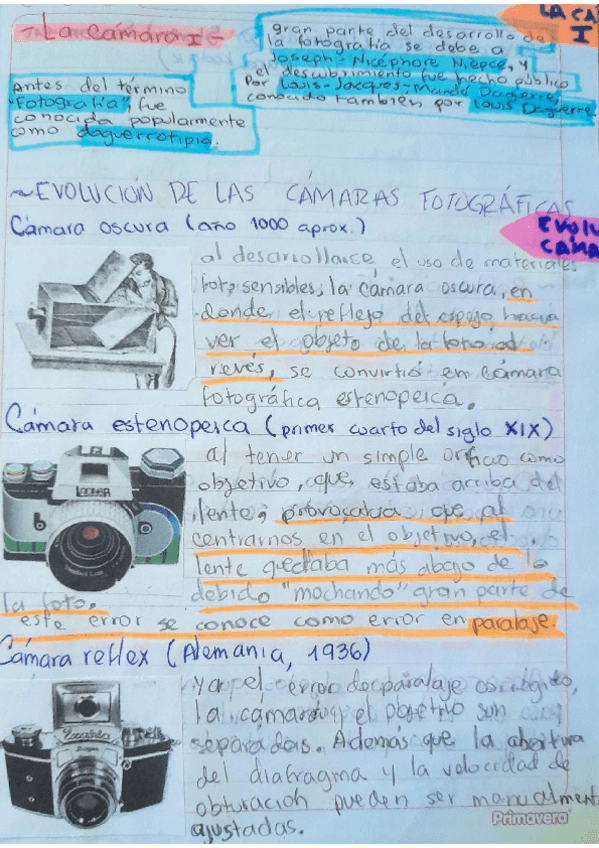 LA CÁ
I
-La cámara I-
gran parte del desarrollo de
la fotografía se debe a
Joseph-Nicéphore Niepce, y
el descubrimiento fue hecho público
Por Louis-Jacques-Mandé Daguerre,
conocido tambien por Louis Daguerre
Antes del término
"Fotografía", fue
conocida popularmente
como daguerrotipia.
~EVOLUCIÓN DE LAS CÁMARAS FOTOGRÁFICAS
Cámara oscura (año 1000 aprox.)
EVOLU
CÁMA
al desarrollarce el uso de materiales
fotosensibles, la cámara oscura, en
donde el reflejo del espejo hacia
ver el objeto de la foto al
revés, se convirtió en cámara
fotográfica estenopeica.
Cámara estenopeica (primer cuarto del siglo XIX)
al tener un simple orificio como
objetivo, que, estaba arriba del
lente, provocaba que al
centrarnos en el objetivo, el
lente quedaba más abajo de lo
debido "mochando" gran parte de
la foto.
este error se conoce como error en paralaje.
Cámara reflex (Alemania, 1936)
ya el error de paralaje corregido,
la cámara y el objetivo son
separadas. Además que la abertura
del diafragma y la velocidad de
obturación pueden ser manualment
ajustadas.
Exakta
Primavera